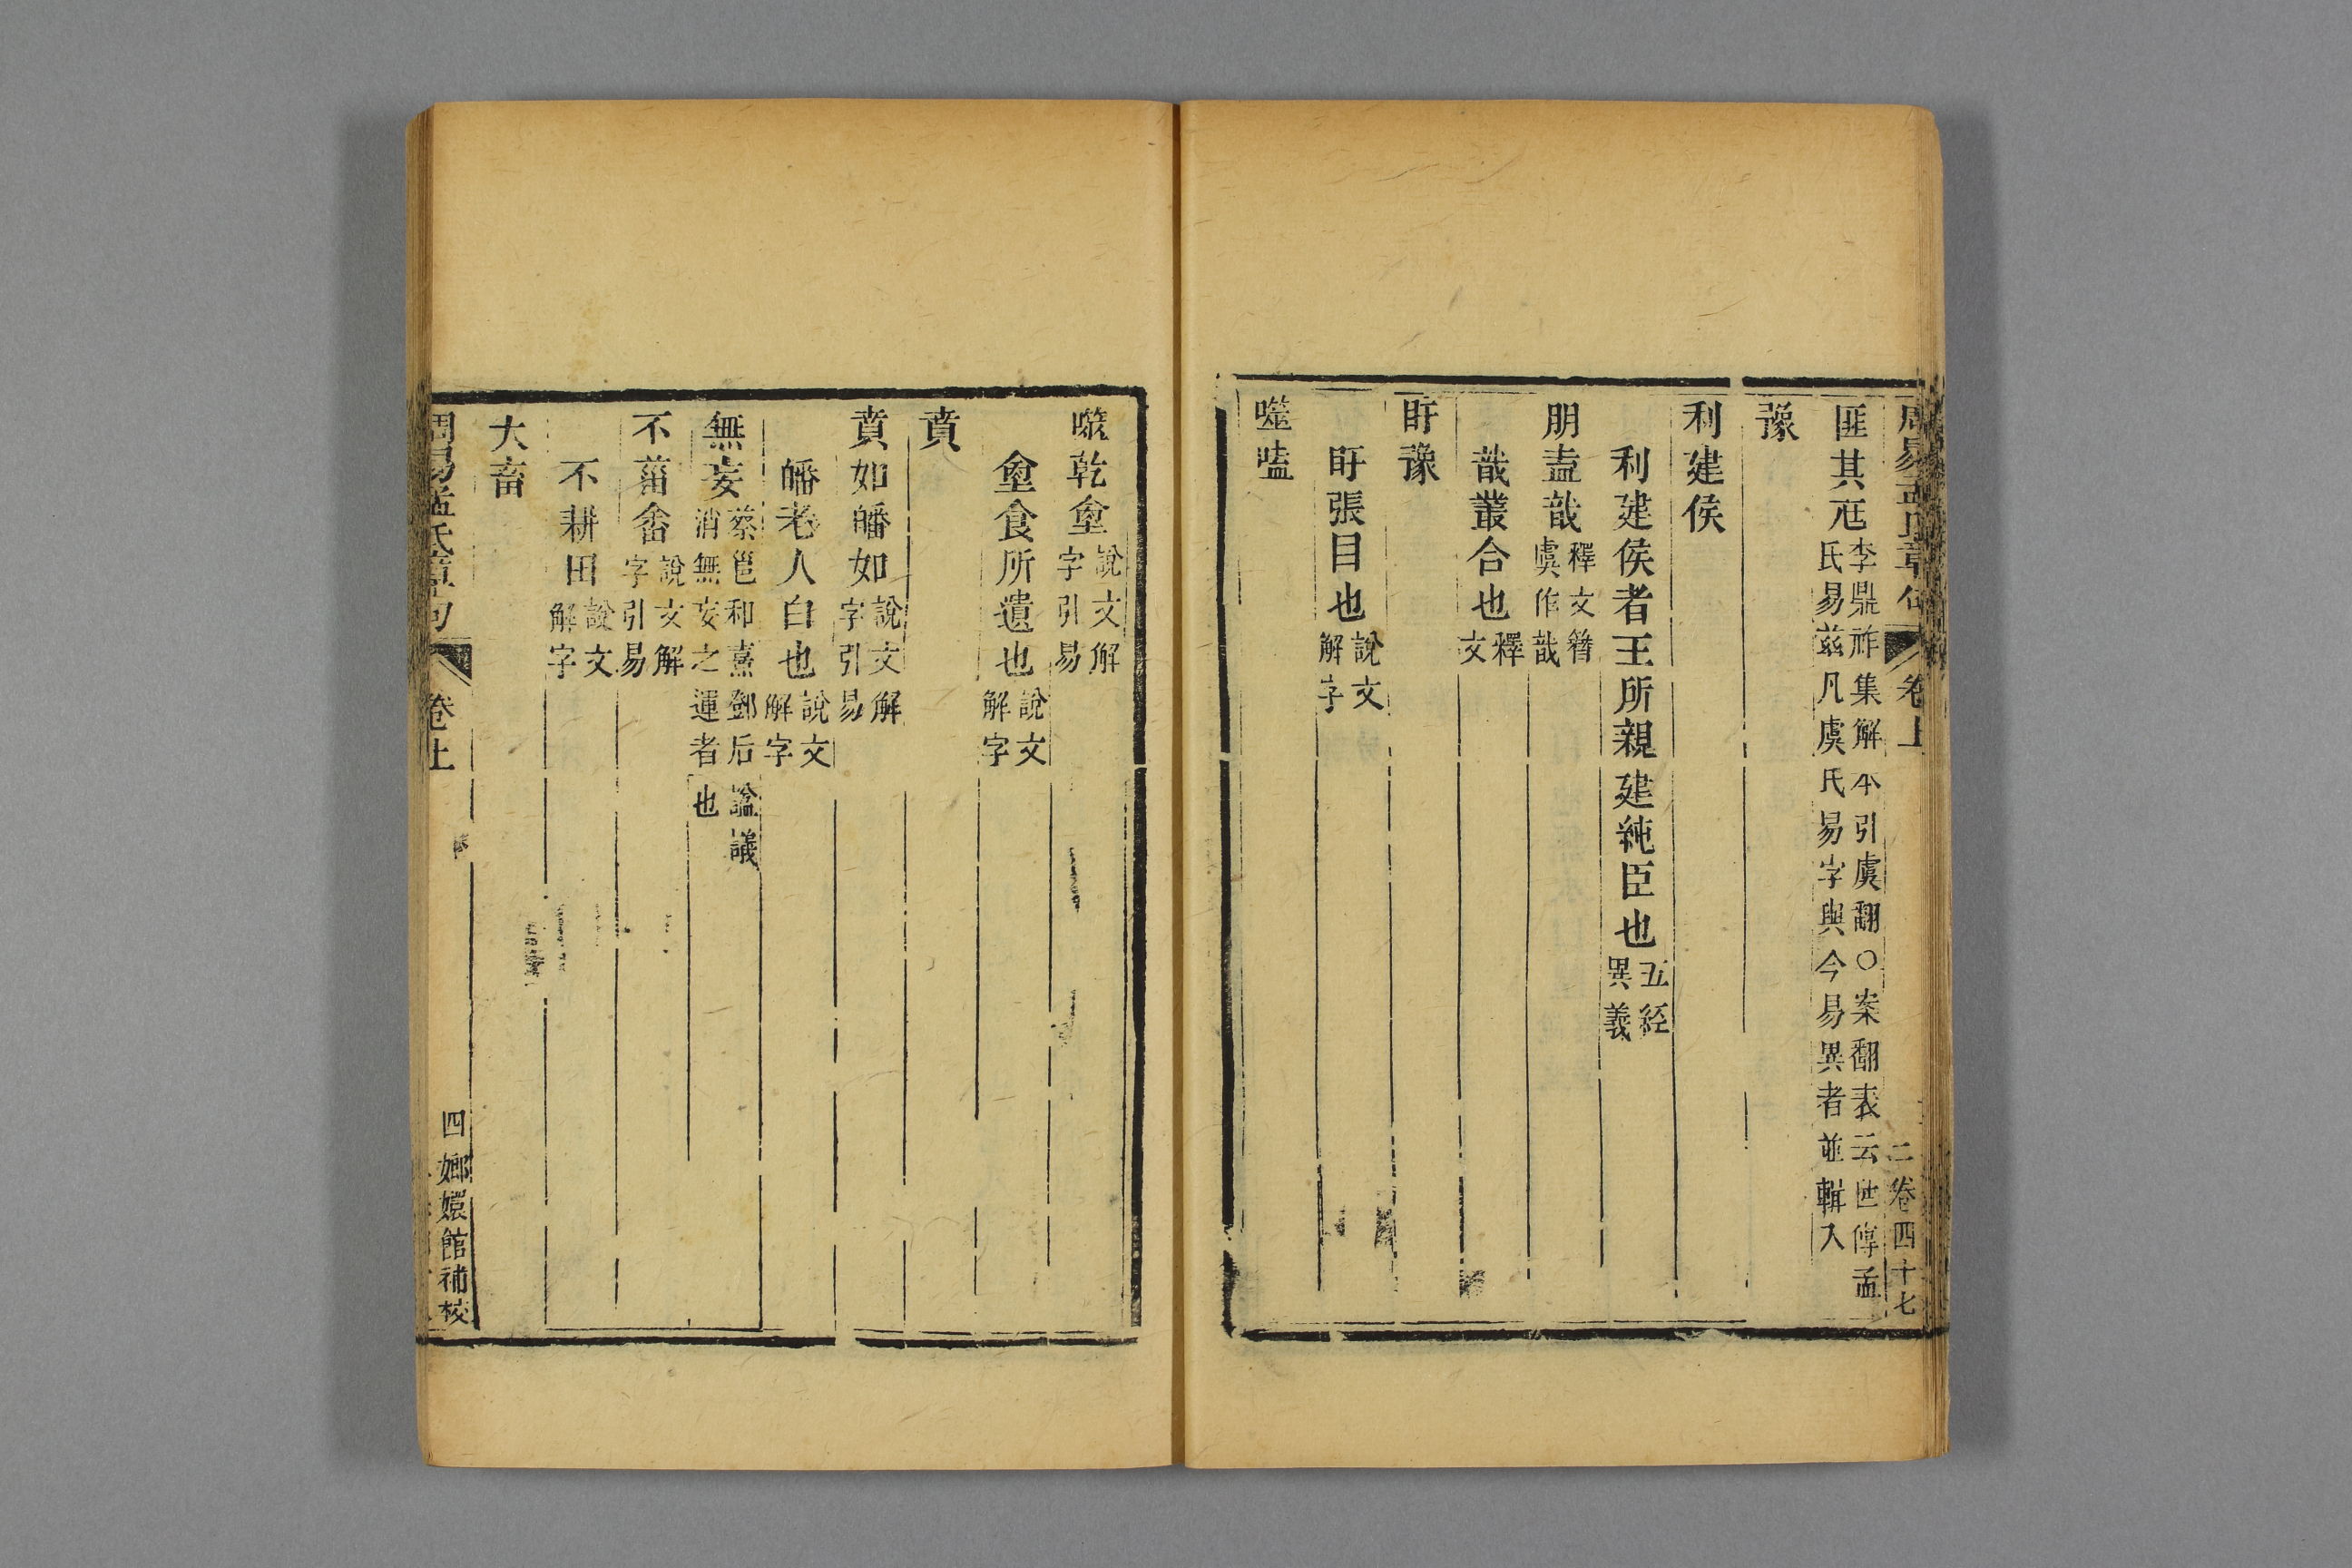 周易孟氏章句 卷上 二 卷四十七
匪其尫李鼎祚集解本引虞翻○案翻表云世傳孟
氏易茲凡虞氏易字與今易異者並輯入
豫
利建侯
利建侯者王所親建純臣也五經
異義
朋盍戠釋文簪
虞作戠
戠叢合也釋
文
盱豫
盱張目也說文
解字
噬嗑
噬乾𩚬說文解
字引易
𩚬食所遺也說文
解字
賁
賁如皤如說文解
字引易
皤老人白也說文
解字
無妄蔡邕和熹鄧后諡議
消無妄之運者也
不菑畬說文解
字引易
不耕田說文
解字
大畜
周易孟氏章句 卷上 四 嫏嬛館補校